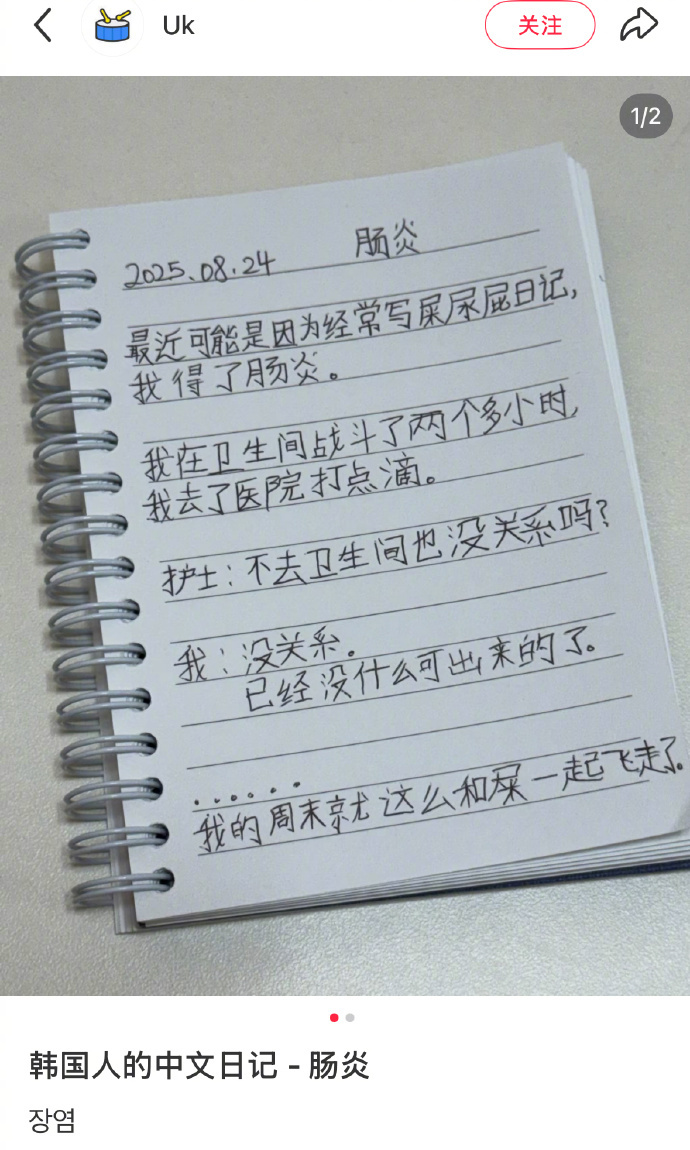 Uk
关注
1/2
2025.08.24 肠炎
最近可能是因为经常写屎尿屁日记,
我得了肠炎。
我在卫生间战斗了两个多小时,
我去了医院打点滴。
护士:不去卫生间也没关系吗?
我:没关系。
已经没什么可出来的了。
......
我的周末就这么和屎一起飞走了。
韩国人的中文日记 - 肠炎
장염